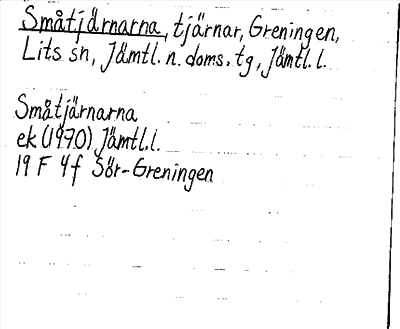 Småtjärnarna, tjärnar, Greningen,
Lits sn, Jämtl. n. doms. tg, Jämtl. l.
Småtjärnarna
ek (1970) Jämtl.l.
19 F 4f Sör-Greningen